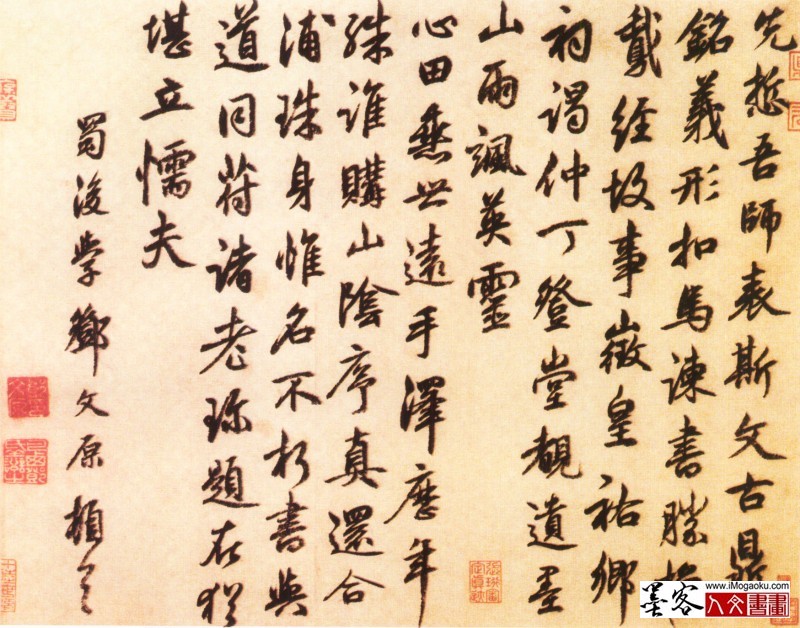 先哲吾師表斯文古鼎
銘義形扣馬諫書勝
鵞經故事徽皇祐鄉
祠謁仲丁登堂覩遺墨
山雨颯英靈
心田垂世遠手澤歷年
殊誰購山陰序真還合
浦珠身惟名不朽書與
道同符諸老珎題在猶
堪立懦夫
蜀後學鄧文原頓首
www.iMogaoku.com
墨客人文書畫